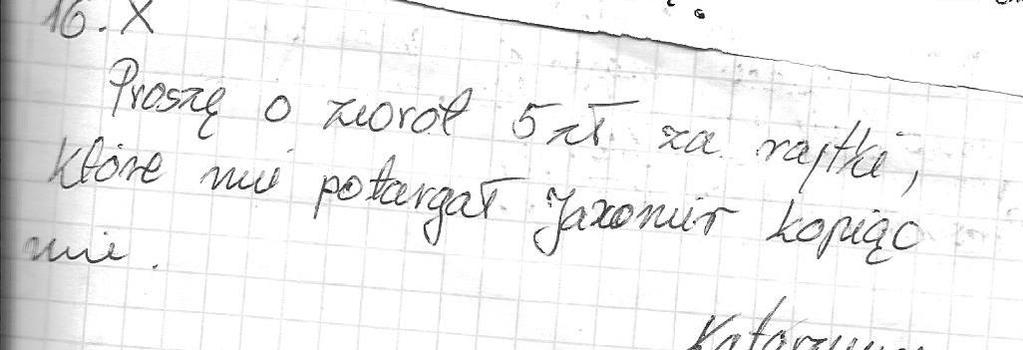 16. X
Proszę o zwrot 5 zł za rajtki,
które mi potargał Jaxomir kopiąc
mie.